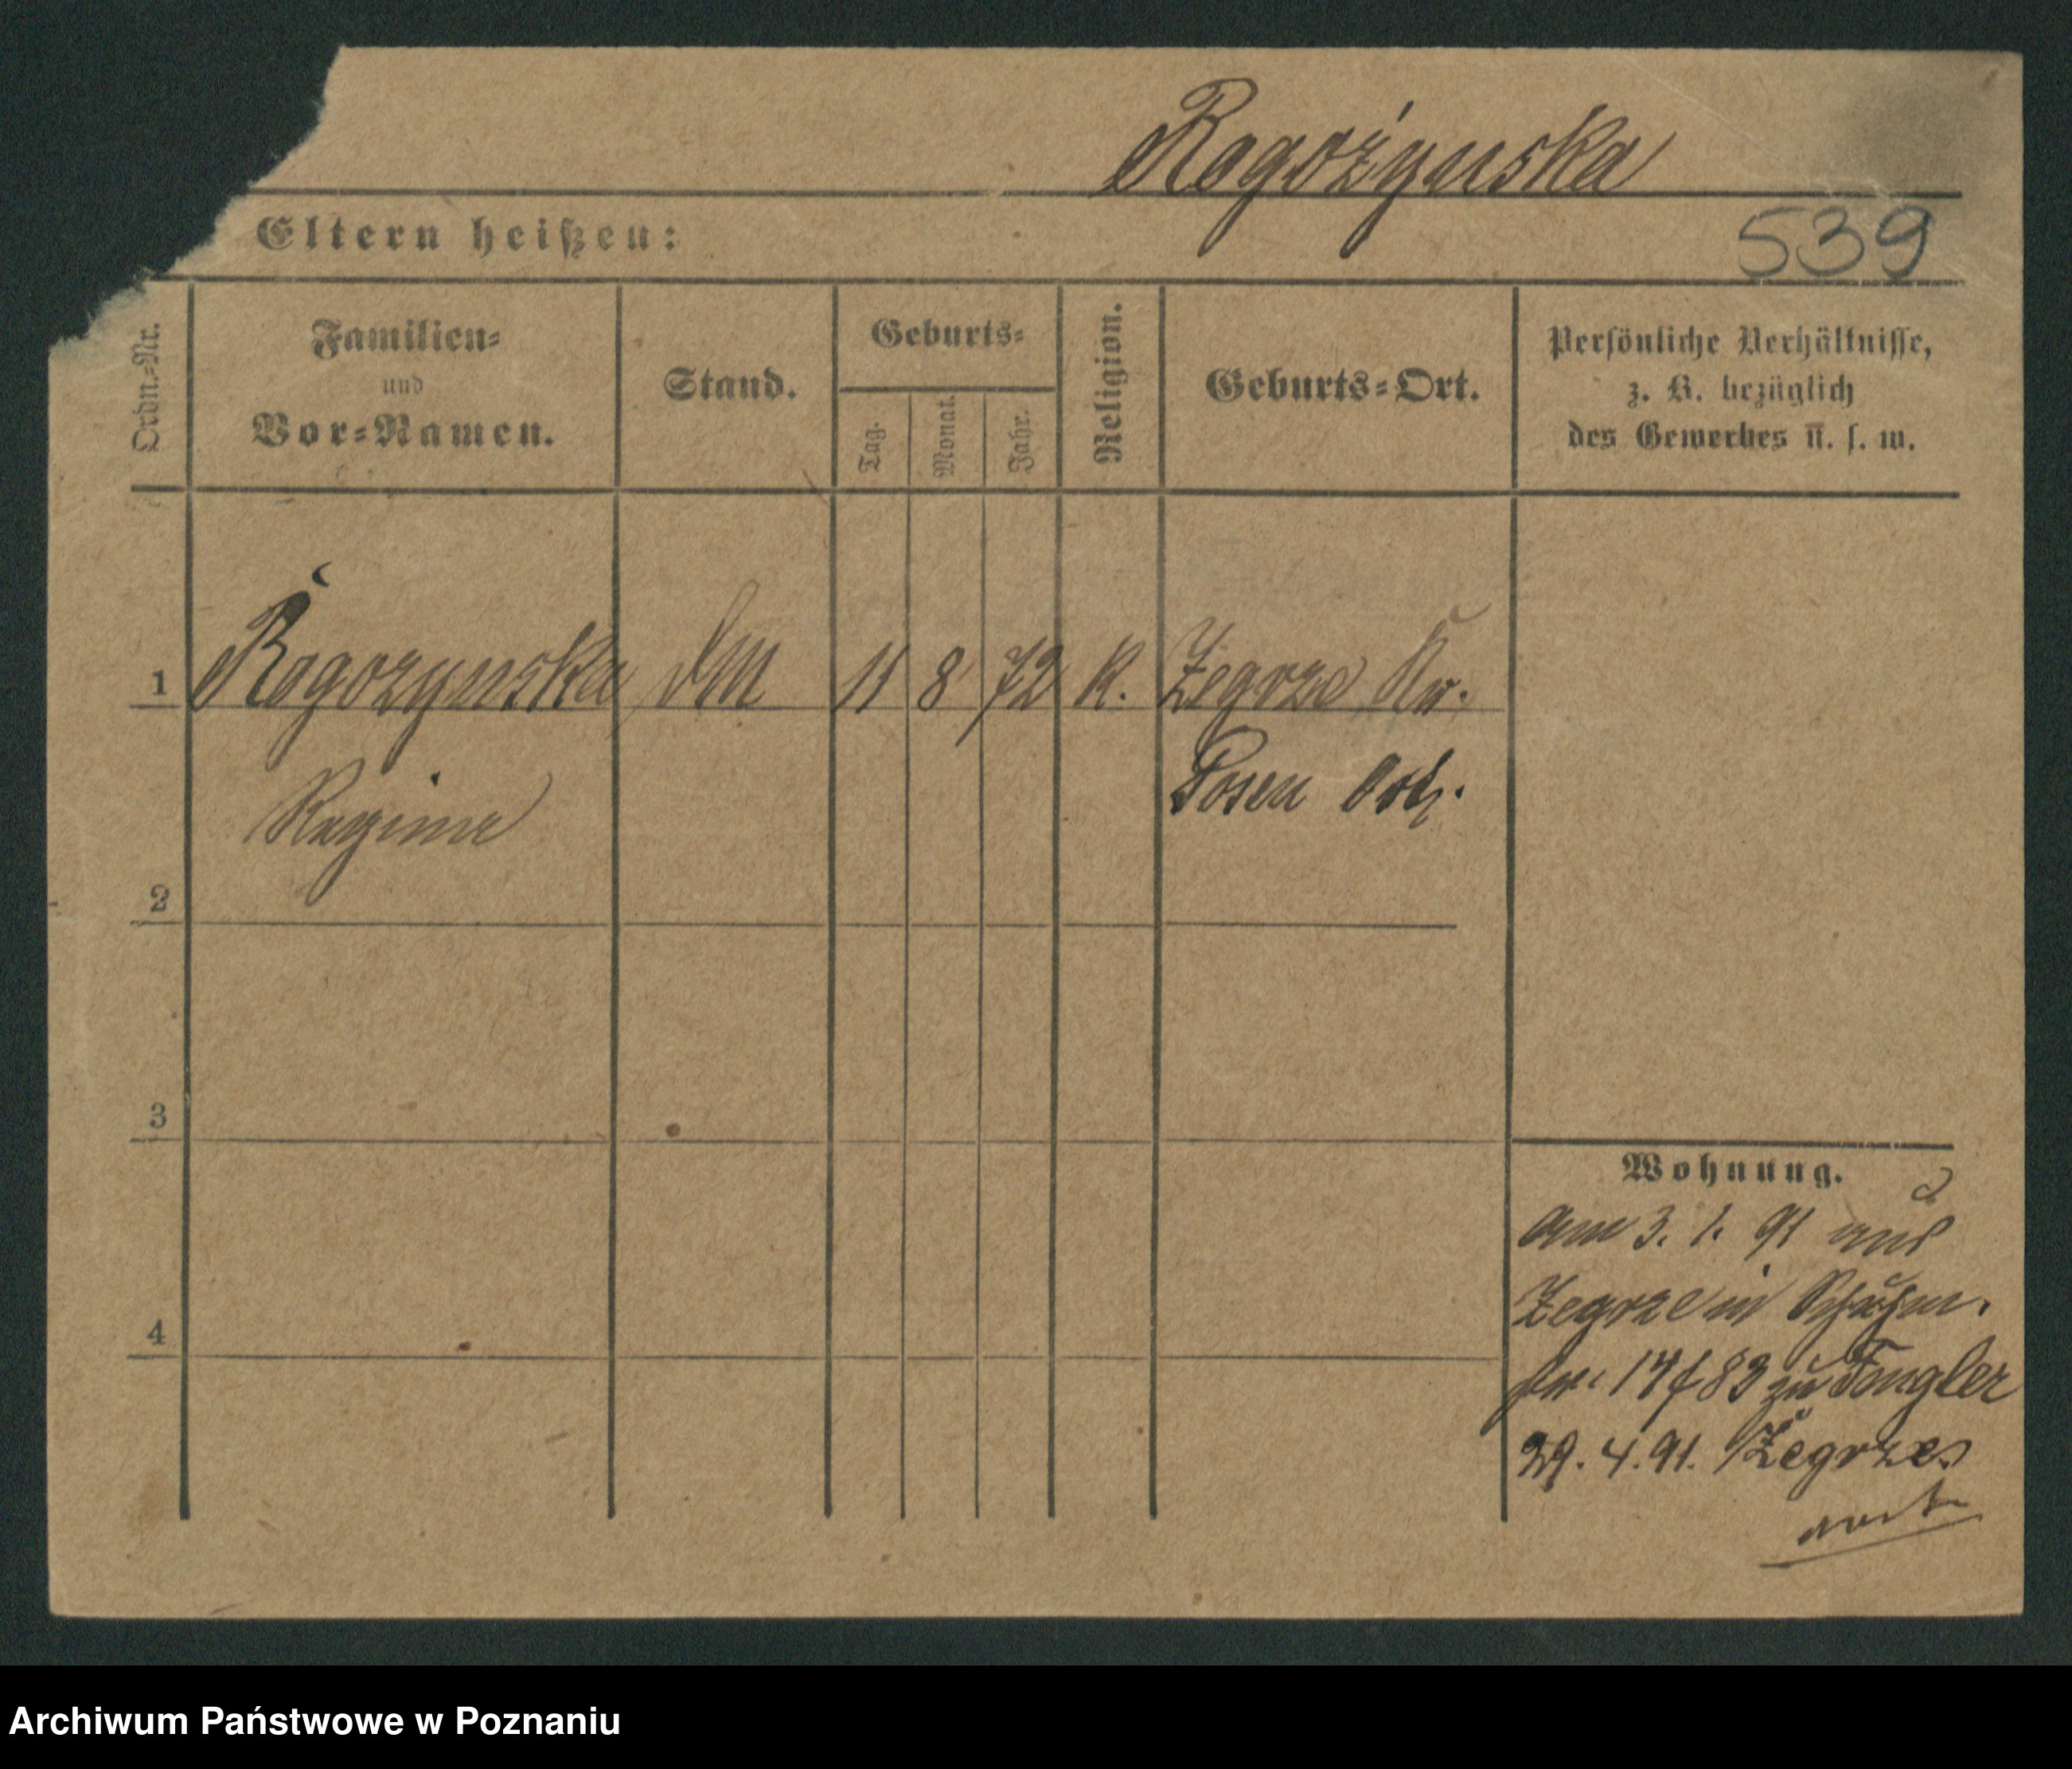 Rogożynska
Eltern heißen:
539
Ordn.-Nr.
Familien-
und
Vor-Namen.
Stand.
Geburts-
Tag.
Monat.
Jahr.
Religion.
Geburts-Ort.
Persönliche Verhältnisse,
z. B. bezüglich
des Gewerbes u. s. w.
1 Rogozynska 8 72 K. Zegrze Kr.
Posen Ost.
Regina
2
3
4
Wohnung.
am 3. 1. 91 aus
Zegrze in
83 zu
29. 4. 91. Zegrze
Archiwum Państwowe w Poznaniu